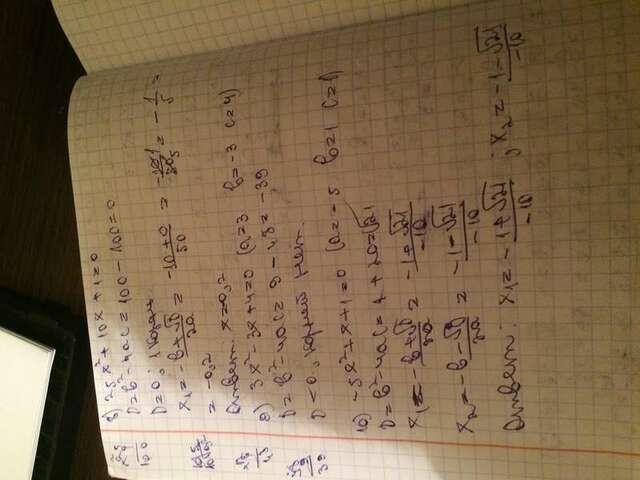 8) 25x² + 10x + 1 = 0
D = b² - 4ac = 100 - 100 = 0
D = 0; 1 корень
x₁ = -b+√D/2a = -10+0/50 = = -1/5 =
= -0,2
Ответ: x = 0,2
9) 3x² - 3x + 4 = 0 (a=3 b=-3 c=4)
D = b² - 4ac = 9 - 48 = -39
D < 0, корней нет.
10) -5x² + x + 1 = 0 (a=-5 b=1 c=1)
D = b² - 4ac = 1 + 20 = √21
x₁ = -b+√D/2a = -1+√21/-10
x₂ = -b-√D/2a = -1-√21/-10
Ответ: x₁ = -1+√21/-10 ; x₂ = -1-√21/-10